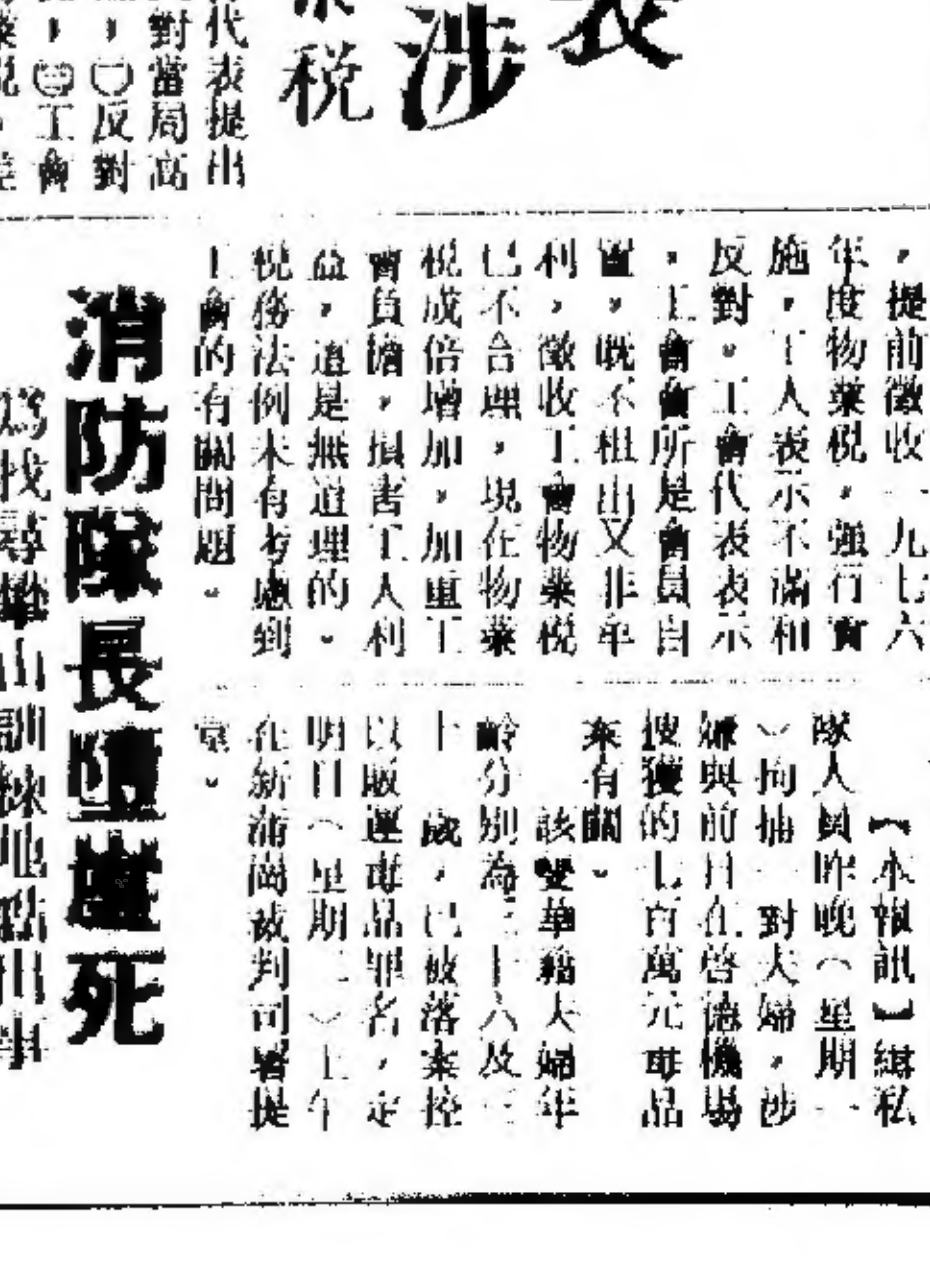 表
涉
税
代表提出
對當局高
，㈡反對
，㈢工會
，提前徵收一九七六
年度物業税，強行實
施，工人表示不滿和
反對。工會代表表示
，工會會所是會員自
置，既不租出又非牟
利，徵收工會物業税
已不合理，現在物業
税成倍增加，加重工
會負擔，損害工人利
益，這是無道理的。
税務法例未有考慮到
工會的有關問題。
【本報訊】緝私
隊人員昨晚（星期一
）拘捕一對夫婦，涉
嫌與前月在啓德機場
搜獲的七百萬元毒品
案有關。
該雙華籍夫婦年
齡分別為三十六及三
十歲，已被落案控
以販運毒品罪名，定
明日（星期二）上午
在新蒲崗裁判司署提
堂。
消防隊長墮崖死
為找尋攀山訓練地點出事